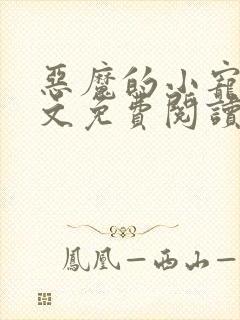 惡魔的小寵
文免費閱讀
鳳凰—西山—